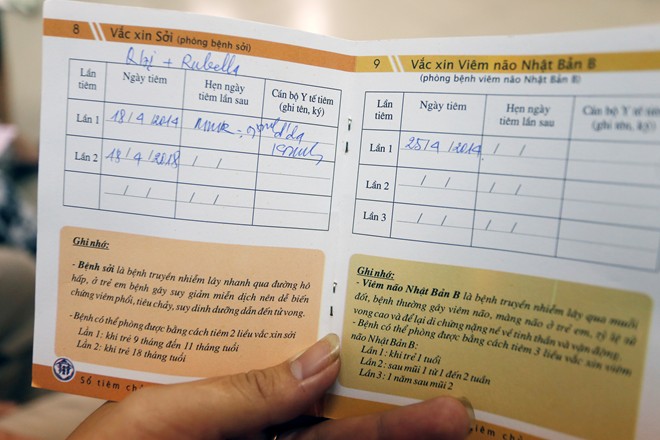 8 Vắc xin Sởi (phòng bệnh sởi)
+ Rubella
Lần tiêm
Ngày tiêm
Hẹn ngày tiêm lần sau
Cán bộ Y tế tiêm (ghi tên, ký)
Lần 1
18/4/2014
Lần 2
18/4/2018
/ /
/ /
/ /
Ghi nhớ:
- Bệnh sởi là bệnh truyền nhiễm lây nhanh qua đường hô
hấp, ở trẻ em bệnh gây suy giảm miễn dịch nên dễ biến
chứng viêm phổi, tiêu chảy, suy dinh dưỡng dẫn đến tử vong.
-Bệnh có thể phòng được bằng cách tiêm 2 liều vắc xin sởi
Lần 1: khi trẻ 9 tháng đến 11 tháng tuổi
Lần 2: khi trẻ 18 tháng tuổi
Sổ tiêm
9 Vắc xin Viêm não Nhật Bản B
(phòng bệnh viêm não Nhật Bản B)
Lần tiêm
Ngày tiêm
Hẹn ngày tiêm lần sau
Cán bộ Y tế
(ghi tên, ký)
Lần 1
25/4/2014
/ /
Lần 2
/ /
/ /
Lần 3
/ /
/ /
Ghi nhớ:
- Viêm não Nhật Bản B là bệnh truyền nhiễm lây qua muỗi
đốt, bệnh thường gây viêm não, màng não ở trẻ em, tỷ lệ tử
vong cao và để lại di chứng nặng nề về tinh thần và vận động.
- Bệnh có thể phòng được bằng cách tiêm 3 liều vắc xin viêm
não Nhật Bản B:
Lần 1: khi trẻ 1 tuổi
Lần 2: sau mũi 1 từ 1 đến 2 tuần
Lần 3: 1 năm sau mũi 2